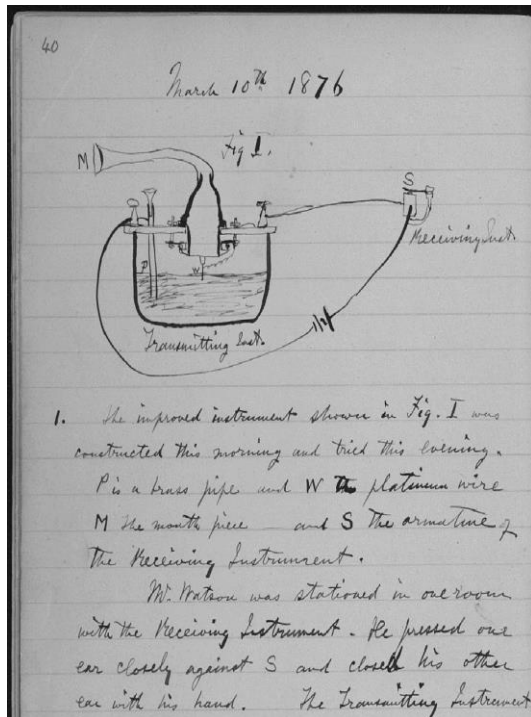 40
March 10th 1876
Fig I.
M
S
Receiving Inst.
P
W
Transmitting Inst.
1. The improved instrument shown in Fig. I was
constructed this morning and tried this evening.
P is a brass pipe and W the platinum wire
M the mouth piece — and S the armature of
the Receiving Instrument.
Mr. Watson was stationed in one room
with the Receiving Instrument. He pressed one
ear closely against S and closed his other
ear with his hand. The Transmitting Instrument